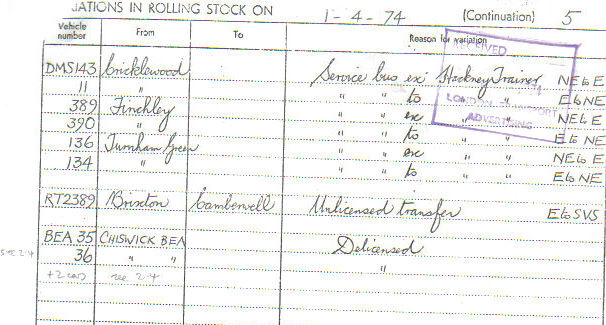 IATIONS IN ROLLING STOCK ON 1-4-74 (Continuation) 5
Vehicle number From To Reason for variation
RECEIVED
DMS143 Cricklewood Service bus ex Hackney Trainer NE to E
11 " " " to " " E to NE
389 Finchley " " ex " " NE to E
390 " " " to " " E to NE
136 Turnham Green " " ex " " NE to E
134 " " " to " " E to NE
LONDON TRANSPORT
ADVERTISING
RT2389 Brixton Camberwell Unlicensed transfer E to SVS
BEA 35 CHISWICK BEA Delicensed
see 2.4 36 " " "
+2 cars see 2.4